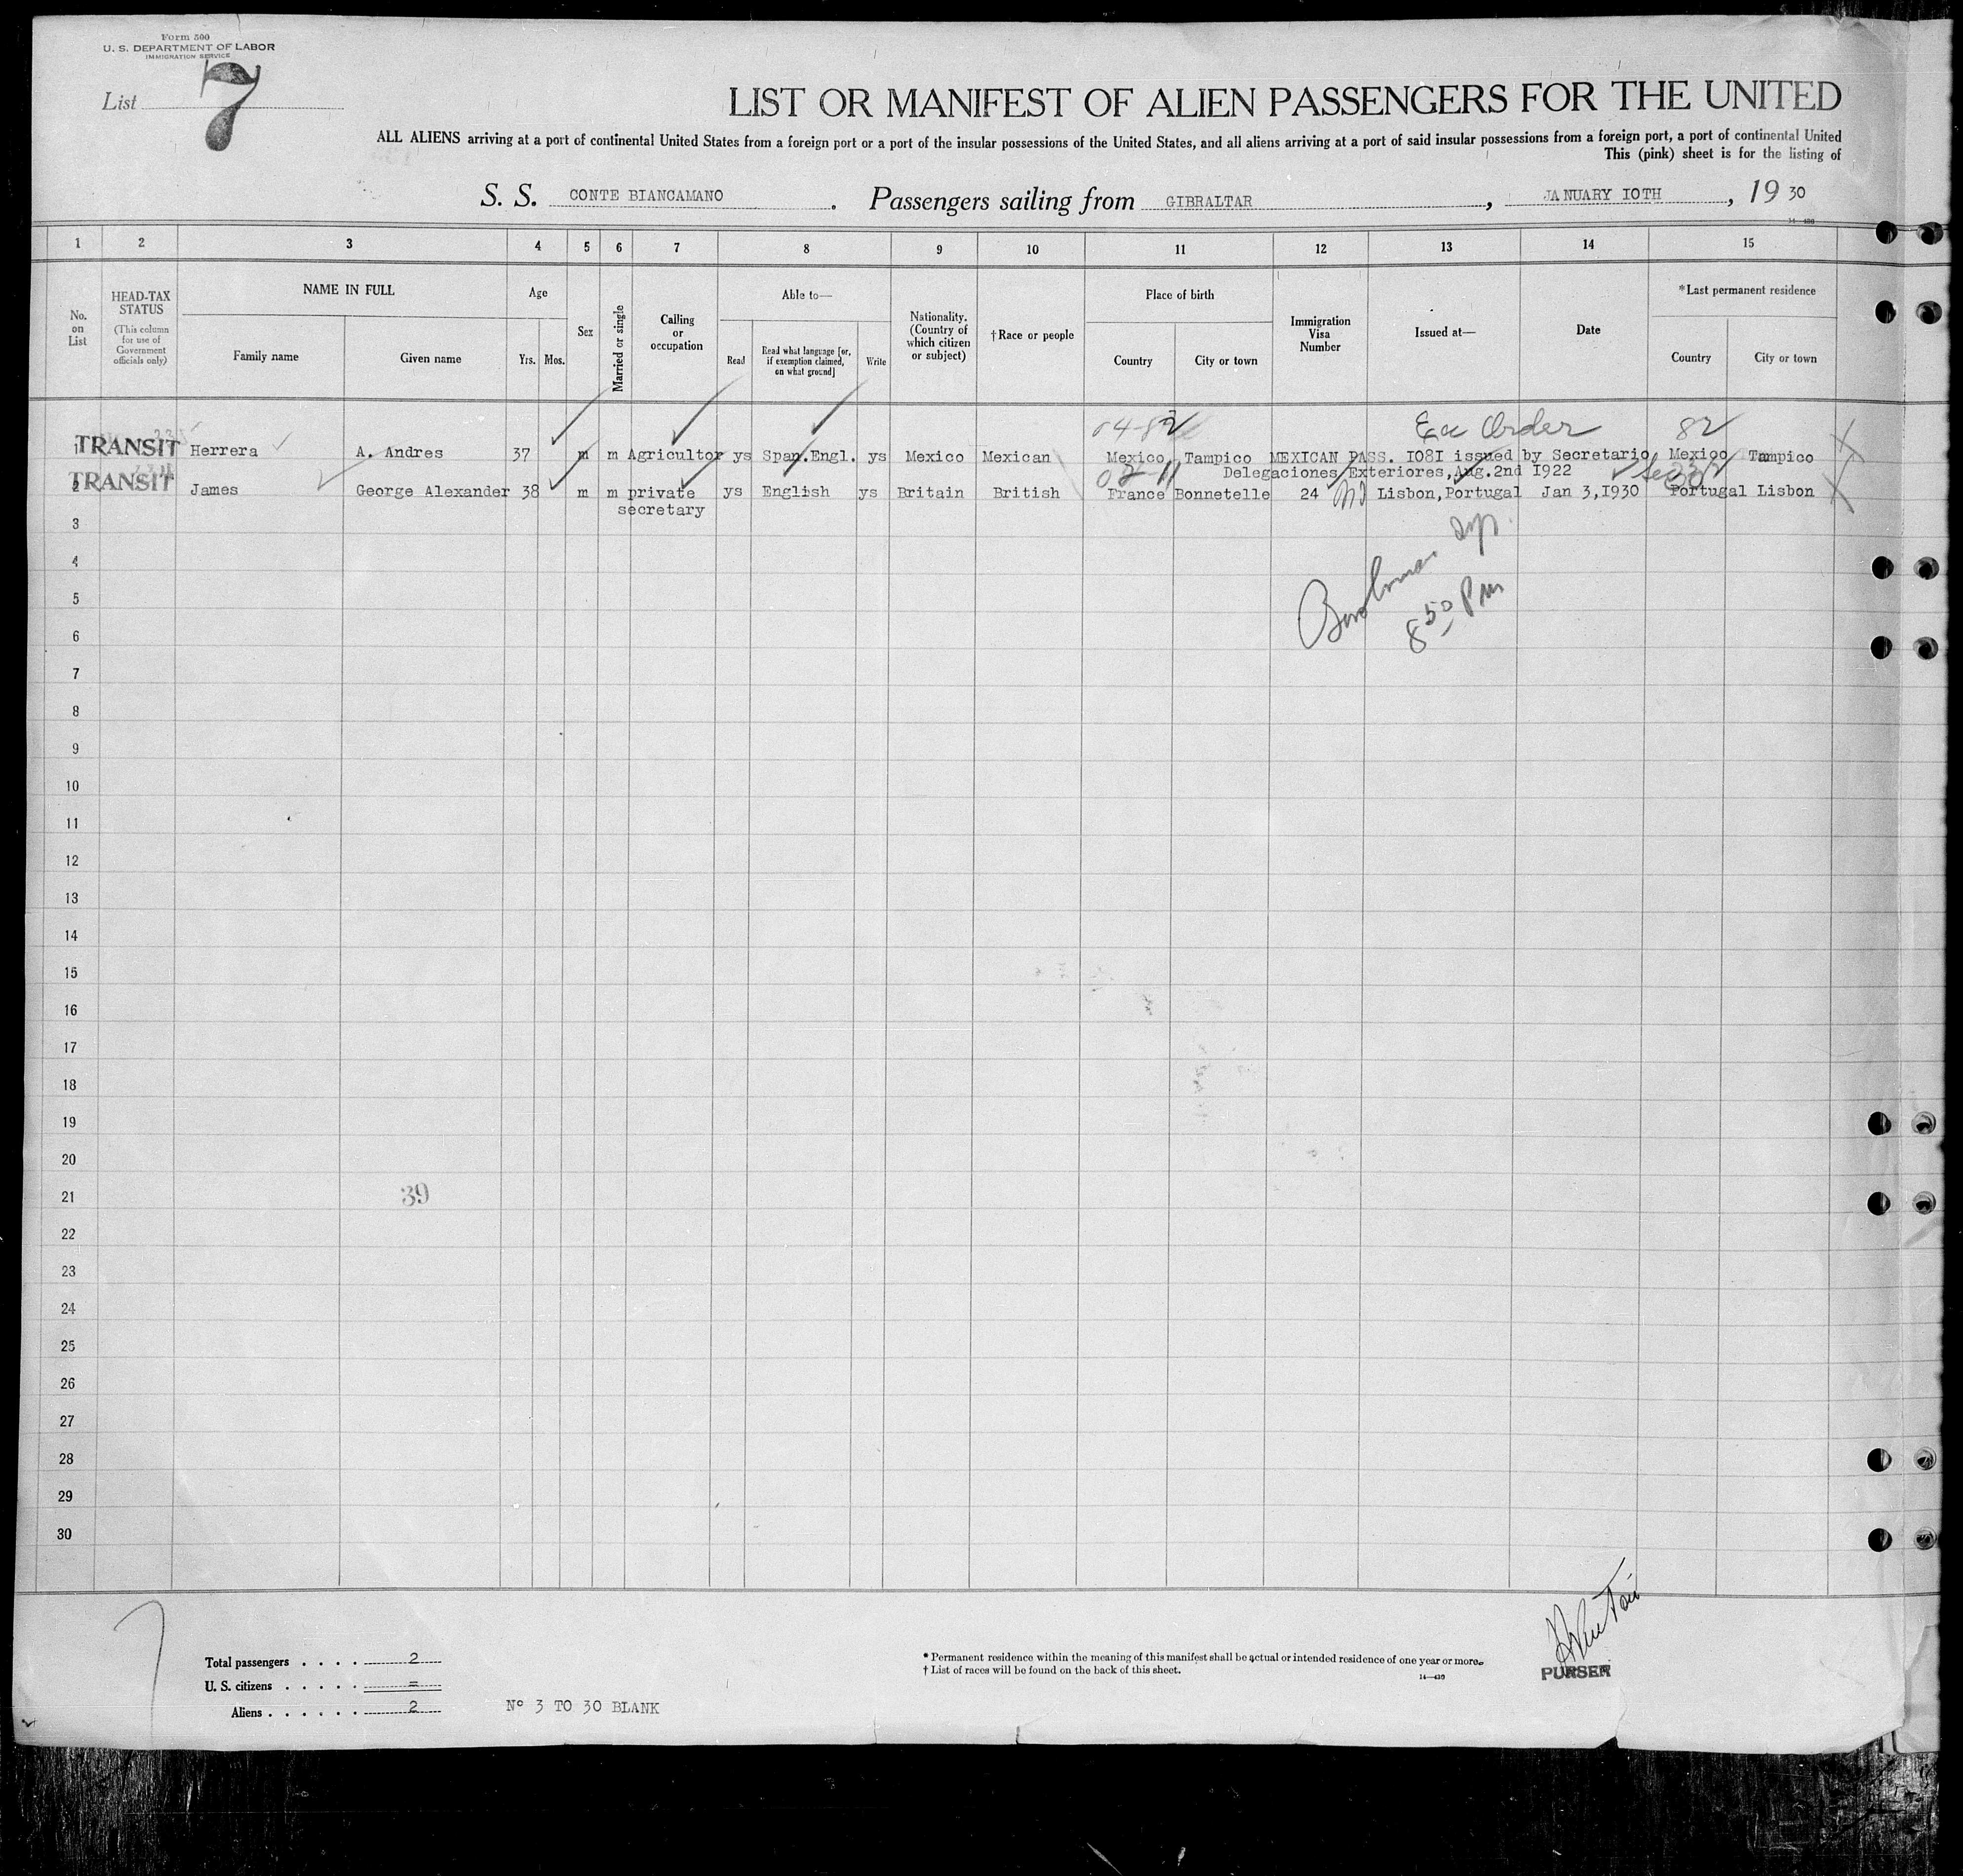 Form 500
U. S. DEPARTMENT OF LABOR
IMMIGRATION SERVICE
List 7
LIST OR MANIFEST OF ALIEN PASSENGERS FOR THE UNITED
ALL ALIENS arriving at a port of continental United States from a foreign port or a port of the insular possessions of the United States, and all aliens arriving at a port of said insular possessions from a foreign port, a port of continental United
This (pink) sheet is for the listing of
S. S. CONTE BIANCAMANO. Passengers sailing from GIBRALTAR, JANUARY IOTH, 19 30
1 2 3 4 5 6 7 8 9 10 11 12 13 14 15
No. on List
HEAD-TAX STATUS (This column for use of Government officials only)
NAME IN FULL
Family name
Given name
Age
Yrs.
Mos.
Sex
Married or single
Calling or occupation
Able to—
Read
Read what language [or, if exemption claimed, on what ground]
Write
Nationality. (Country of which citizen or subject)
†Race or people
Place of birth
Country
City or town
Immigration Visa Number
Issued at—
Date
*Last permanent residence
Country
City or town
Ex Order 82
1 TRANSIT Herrera A. Andres 37 m m Agricultor ys Span.Engl. ys Mexico Mexican Mexico Tampico MEXICAN PASS. IO8I issued by Secretario Mexico Tampico
Delegaciones Exteriores, Aug.2nd I922
2 TRANSIT James George Alexander 38 m m private ys English ys Britain British France Bonnetelle 24 Lisbon,Portugal Jan 3,I930 Portugal Lisbon
secretary
3
4
5
8 50 Pm
6
7
8
9
10
11
12
13
14
15
16
17
18
19
20
21 39
22
23
24
25
26
27
28
29
30
Total passengers . . . . 2
U. S. citizens . . . . . =
Aliens . . . . . . 2
Nº 3 TO 30 BLANK
* Permanent residence within the meaning of this manifest shall be actual or intended residence of one year or more.
† List of races will be found on the back of this sheet.
14—430
PURSER